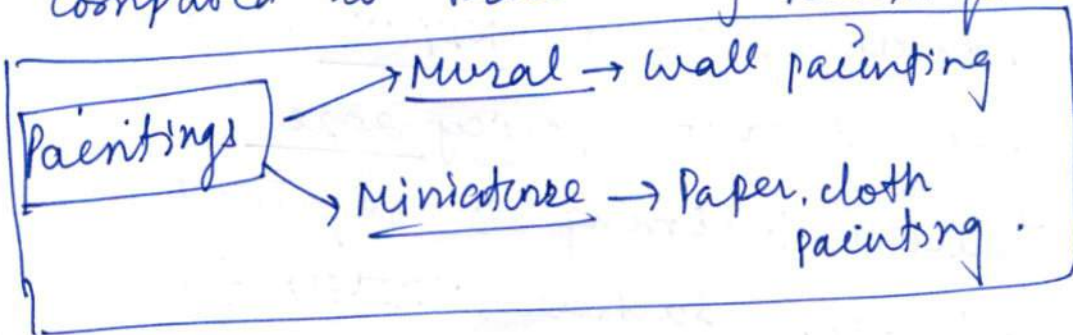 compared to
Paintings → Mural → Wall painting
→ Miniature → Paper, cloth
painting.